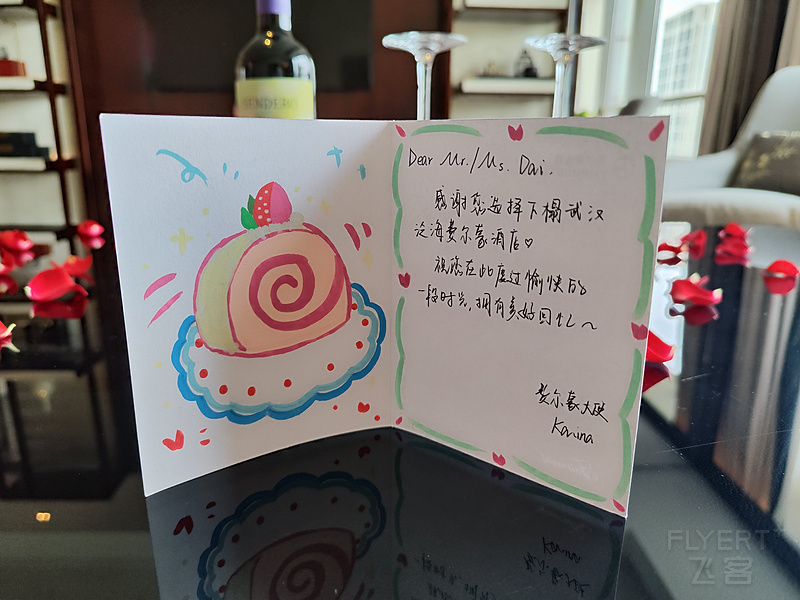 SENDERO
Dear Mr./Ms. Dai.
感谢您选择下榻武汉
泛海费尔蒙酒店♡
祝您在此度过愉快的
一段时光,拥有美好回忆~
费尔蒙大使
Karina
FLYERT
飞客